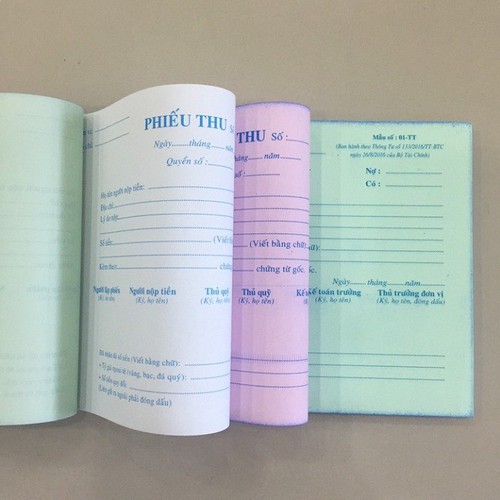 PHIẾU THU Số
Ngày......tháng......năm
Quyển số :
Họ tên người nộp tiền:
Địa chỉ:
Lý do nộp:
Số tiền: (Viết bằng chữ)
Kèm theo: chứng
Người lập phiếu Người nộp tiền Thủ quỹ
(Ký, họ tên) (Ký, họ tên) (Ký, họ tên)
Đã nhận đủ số tiền (Viết bằng chữ):
+ Tỷ giá ngoại tệ (vàng, bạc, đá quý):
+ Số tiền quy đổi:
(Liên gửi ra ngoài phải đóng dấu)
THU Số :
tháng...... năm
(Viết bằng chữ):
chứng từ gốc.
Mẫu số : 01-TT
(Ban hành theo Thông Tư số 133/2016/TT-BTC
ngày 26/8/2016 của Bộ Tài Chính)
Nợ :
Có :
Ngày......tháng......năm
Kế toán trưởng Thủ trưởng đơn vị
(Ký, họ tên) (Ký, họ tên, đóng dấu)